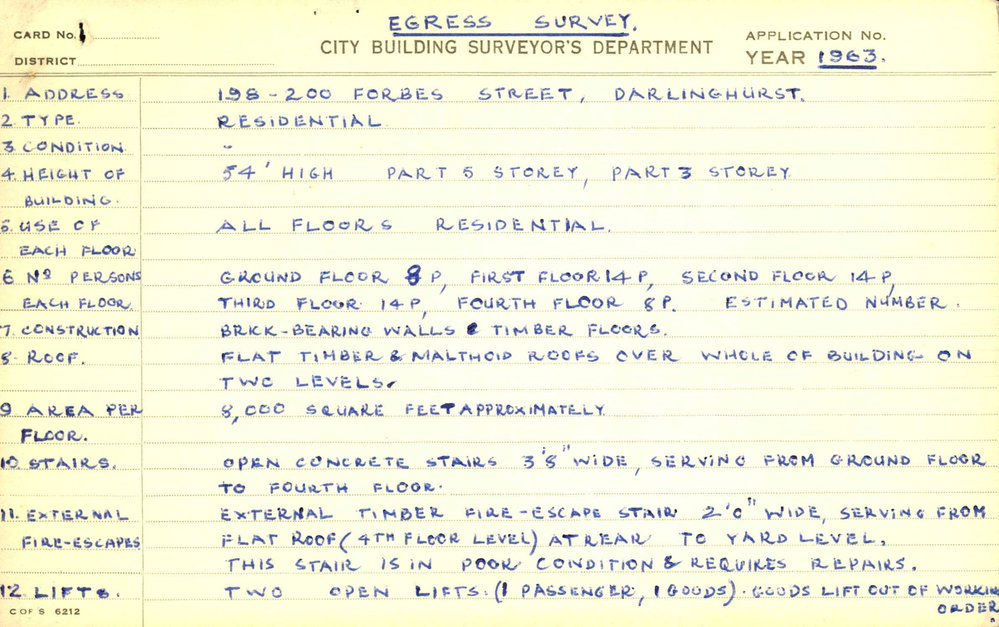 EGRESS SURVEY.
CARD No. 1
CITY BUILDING SURVEYOR'S DEPARTMENT
APPLICATION No.
DISTRICT
YEAR 1963.
1. ADDRESS 198-200 FORBES STREET, DARLINGHURST.
2. TYPE. RESIDENTIAL
3. CONDITION -
4. HEIGHT OF 54' HIGH PART 5 STOREY, PART 3 STOREY
BUILDING.
5. USE OF ALL FLOORS RESIDENTIAL.
EACH FLOOR
6 Nº PERSONS GROUND FLOOR 8 P, FIRST FLOOR 14 P, SECOND FLOOR 14 P,
EACH FLOOR. THIRD FLOOR 14 P, FOURTH FLOOR 8 P. ESTIMATED NUMBER.
7. CONSTRUCTION BRICK-BEARING WALLS & TIMBER FLOORS.
8. ROOF. FLAT TIMBER & MALTHOID ROOFS OVER WHOLE OF BUILDING ON
TWO LEVELS.
9 AREA PER 8,000 SQUARE FEET APPROXIMATELY
FLOOR.
10. STAIRS. OPEN CONCRETE STAIRS 3'8" WIDE, SERVING FROM GROUND FLOOR
TO FOURTH FLOOR.
11. EXTERNAL EXTERNAL TIMBER FIRE-ESCAPE STAIR 2'0" WIDE, SERVING FROM
FIRE-ESCAPES FLAT ROOF (4TH FLOOR LEVEL) AT REAR TO YARD LEVEL.
THIS STAIR IS IN POOR CONDITION & REQUIRES REPAIRS.
12. LIFTS. TWO OPEN LIFTS. (1 PASSENGER, 1 GOODS). GOODS LIFT OUT OF WORKING
ORDER.
C OF S 6212